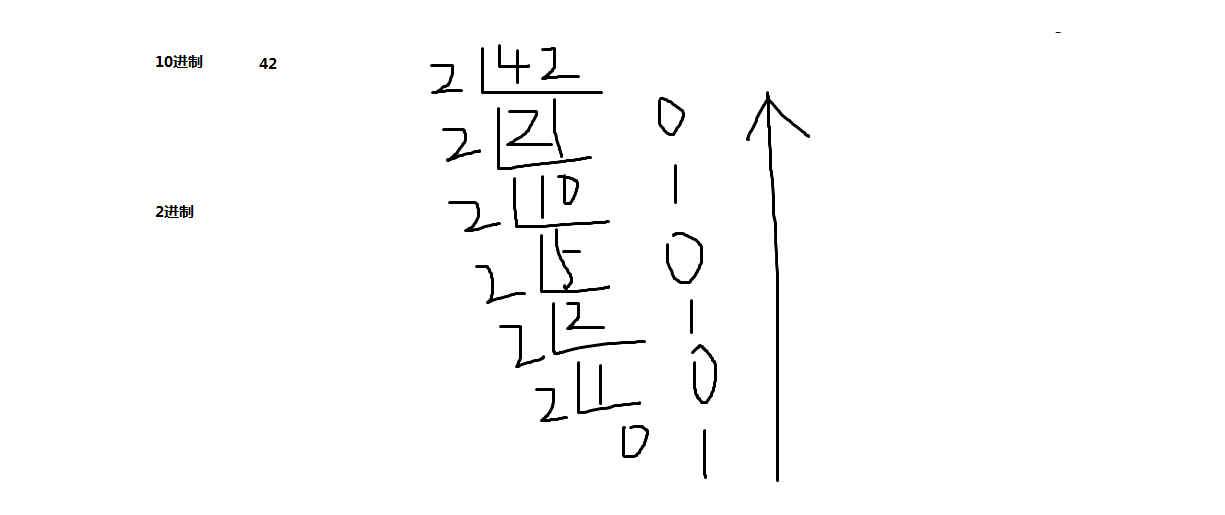 10进制 42
2 42
2 21 0
2 10 1
2进制
2 5 0
2 2 1
2 1 0
0 1